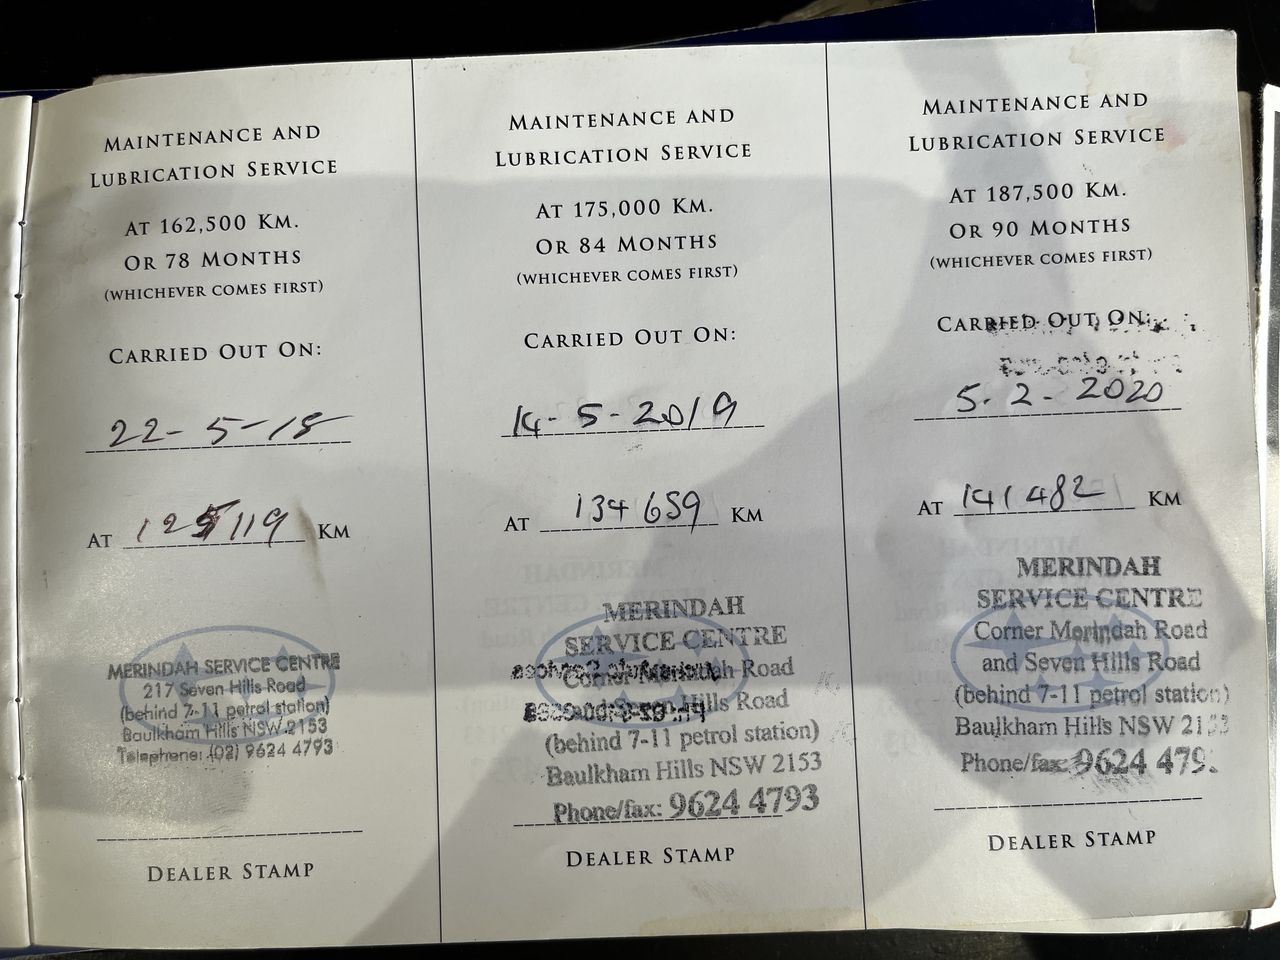 MAINTENANCE AND
LUBRICATION SERVICE
AT 162,500 KM.
OR 78 MONTHS
(WHICHEVER COMES FIRST)
CARRIED OUT ON:
22-5-18
AT 125119 KM
MERINDAH SERVICE CENTRE
217 Seven Hills Road
(behind 7-11 petrol station)
Baulkham Hills NSW 2153
Telephone: (02) 9624 4793
DEALER STAMP
MAINTENANCE AND
LUBRICATION SERVICE
AT 175,000 KM.
OR 84 MONTHS
(WHICHEVER COMES FIRST)
CARRIED OUT ON:
14-5-2019
AT 134659 KM
MERINDAH
SERVICE CENTRE
Corner Merindah Road
and Seven Hills Road
(behind 7-11 petrol station)
Baulkham Hills NSW 2153
Phone/fax: 9624 4793
DEALER STAMP
MAINTENANCE AND
LUBRICATION SERVICE
AT 187,500 KM.
OR 90 MONTHS
(WHICHEVER COMES FIRST)
CARRIED OUT ON:
5.2-2020
AT 141482 KM
MERINDAH
SERVICE CENTRE
Corner Merindah Road
and Seven Hills Road
(behind 7-11 petrol station)
Baulkham Hills NSW 2153
Phone/fax: 9624 479
DEALER STAMP